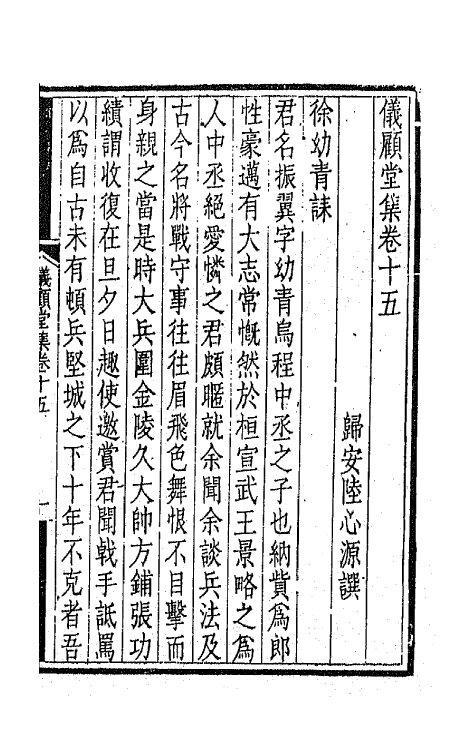 儀顧堂集卷十五
歸安陸心源譔
徐幼青誄
君名振翼字幼青烏程中丞之子也納貲爲郎
性豪邁有大志常慨然於桓宣武王景略之爲
人中丞絕愛憐之君頗暱就余聞余談兵法及
古今名將戰守事往往眉飛色舞恨不目擊而
身親之當是時大兵圍金陵久大帥方鋪張功
績謂收復在旦夕日趣使邀賞君聞戟手詆罵
以爲自古未有頓兵堅城之下十年不克者吾
儀顧堂集卷十五
一